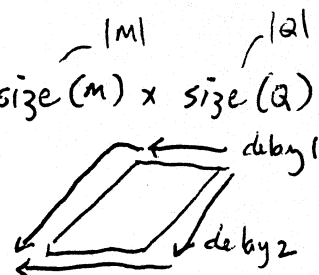 |M| |Q|
size (M) x size (Q)
delay 1
delay 2